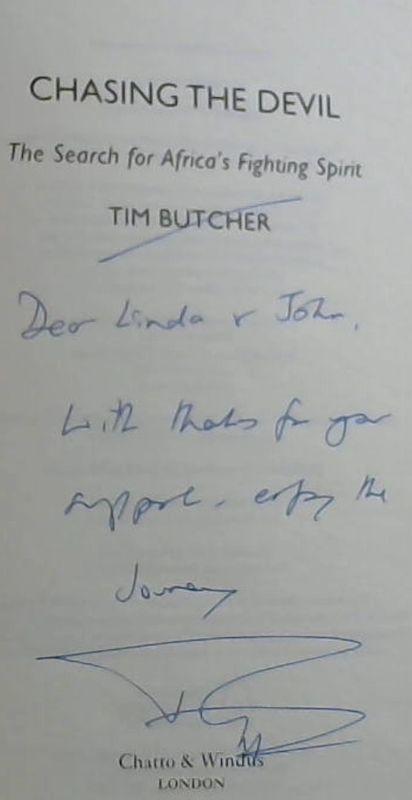 CHASING THE DEVIL
The Search for Africa's Fighting Spirit
TIM BUTCHER
Dear Linda & John,
With thanks for your
support - enjoy the
Journey
Chatto & Windus
LONDON